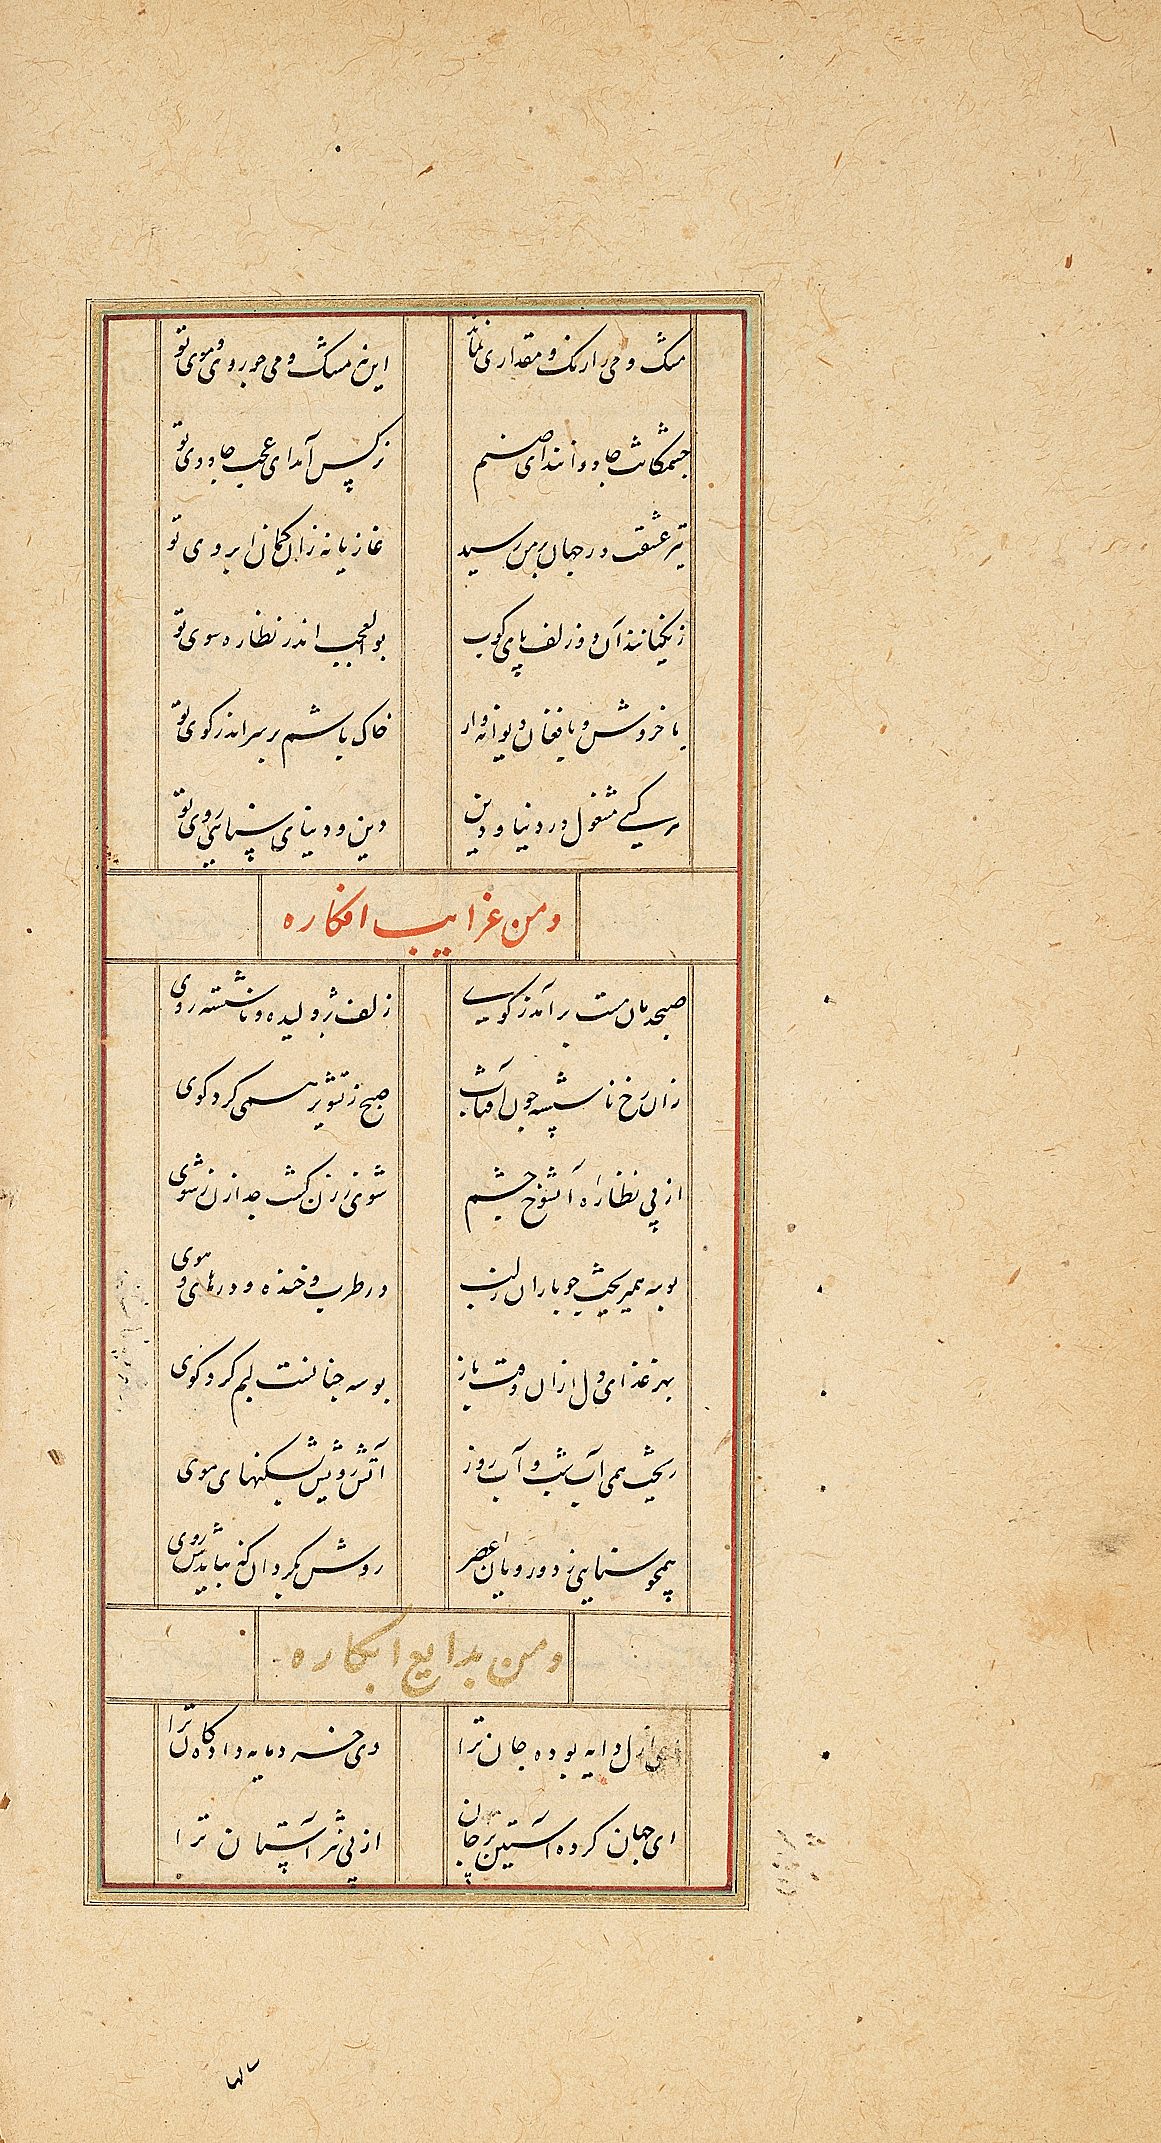 مشک و می را رنگ و مقداری نماند
این مشک و می چو روی و موی تو
چشمکانت جاودانند ای صنم
نرگس آمد ای عجب جادوی تو
تیر عشقت در جهان بر من رسید
غازیانه زان کمان ابروی تو
زنگیانند آن دو زلف پای کوب
بوالعجب اندر نظاره سوی تو
با خروش و با فغان دیوانه وار
خاک باشم بر سر اندر کوی تو
هر کسی مشغول در دنیا و دین
دین و دنیای سنایی روی تو
ومن غرایب افکاره
صبحدمان مست برآمد ز کوی
زلف ژولیده و ناشسته روی
زان رخ ناشسته چون آفتاب
صبح ز تشویر همی کرد کوی
از پی نظاره آن شوخ چشم
شوی ز زن گشت جدا زن ز شوی
بوسه همی ریخت چو باران ز لب
در طرب و خنده و در های و هوی
بهر غذای دل از آن وقت باز
بوسه چنانست لبم گرد کوی
ریخت همی آب شب و آب روز
آتش رویش شکنهای موی
همچو سنایی ز دو رویان عصر
روش بگردان که نیابدش روی
ومن بدایع ابکاره
ازل دایه بوده جان ترا
وی خرد مایه داده کان ترا
ای جهان کرده آستین پر جان
از پی نثر آستان ترا
سالها